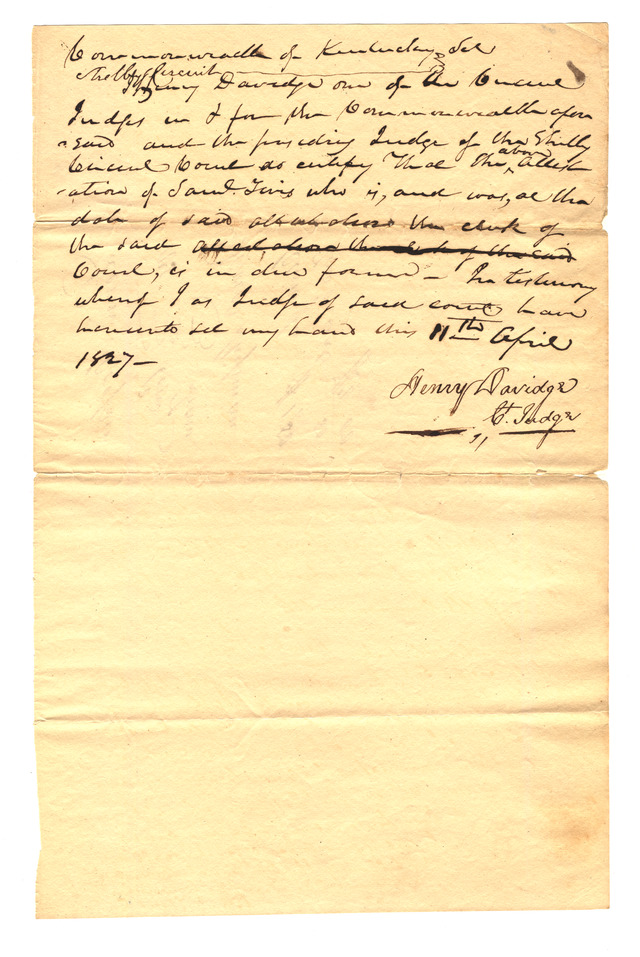 Commonwealth of Kentucky Sct
Shelby Circuit
I Henry Davidge one of the Circuit
Judges in & for the Commonwealth afore
said and the presiding Judge of the Shelby
Circuit Court do certify that the above Attest
ation of Saml. Tevis who is, and was, at the
date of said attestation the clerk of
the said attestation the clerk of the said
Court, is in due form – In testimony
whereof I as Judge of said court have
hereunto set my hand this 11th April
1827 –
Henry Davidge
C. Judge